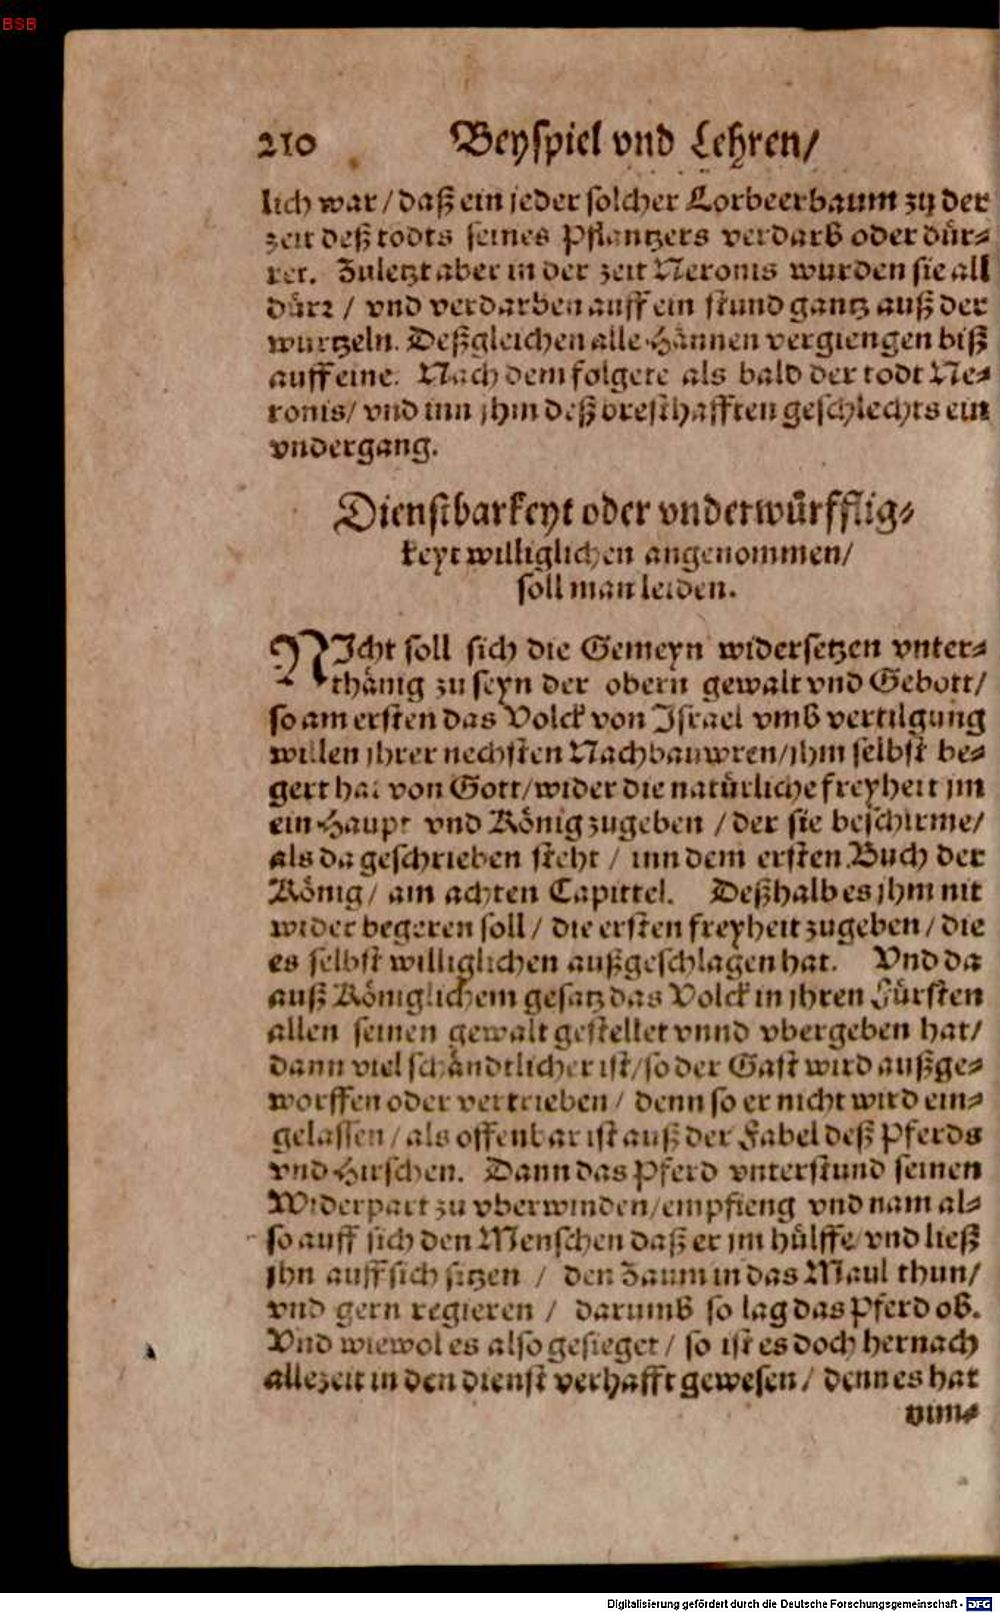 BSB
210 Beyspiel vnd Lehren/
lich war / daß ein jeder solcher Lorbeerbaum zů der
zeit deß todts seines Pflantzers verdarb oder dür-
ret. Zuletzt aber in der zeit Neronis wurden sie all
dürr / vnd verdarben auff ein stund gantz auß der
wurtzeln. Deßgleichen alle Hännen vergiengen biß
auff eine. Nach dem folgete als bald der todt Ne-
ronis/ vnd inn jhm deß bresthafften geschlechts ein
vndergang.
Dienstbarkeyt oder vnderwürfflig-
keyt williglichen angenommen/
soll man leiden.
NIcht soll sich die Gemeyn widersetzen vnter-
thänig zu seyn der obern gewalt vnd Gebott/
so am ersten das Volck von Israel vmb vertilgung
willen jhrer nechsten Nachbauwren/jhm selbst be-
gert hat von Gott/wider die natürliche freyheit jm
ein Haupt vnd König zugeben / der sie beschirme/
als da geschrieben steht / inn dem ersten Buch der
König / am achten Capittel. Deßhalb es jhm nit
wider begeren soll / die ersten freyheit zugeben / die
es selbst williglichen außgeschlagen hat. Vnd da
auß Königlichem gesatz das Volck in jhren Fürsten
allen seinen gewalt gestellet vnnd vbergeben hat/
dann viel schändtlicher ist/so der Gast wird außge-
worffen oder vertrieben / denn so er nicht wird ein-
gelassen / als offenbar ist auß der Fabel deß Pferds
vnd Hirschen. Dann das Pferd vnterstund seinen
Widerpart zu vberwinden/empfieng vnd nam al-
so auff sich den Menschen daß er jm hülffe/ vnd ließ
jhn auff sich sitzen / den Zaum in das Maul thun/
vnd gern regieren / darumb so lag das Pferd ob.
Vnd wiewol es also gesieget / so ist es doch hernach
allezeit in den dienst verhafft gewesen / denn es hat
nim-
Digitalisierung gefördert durch die Deutsche Forschungsgemeinschaft - DFG